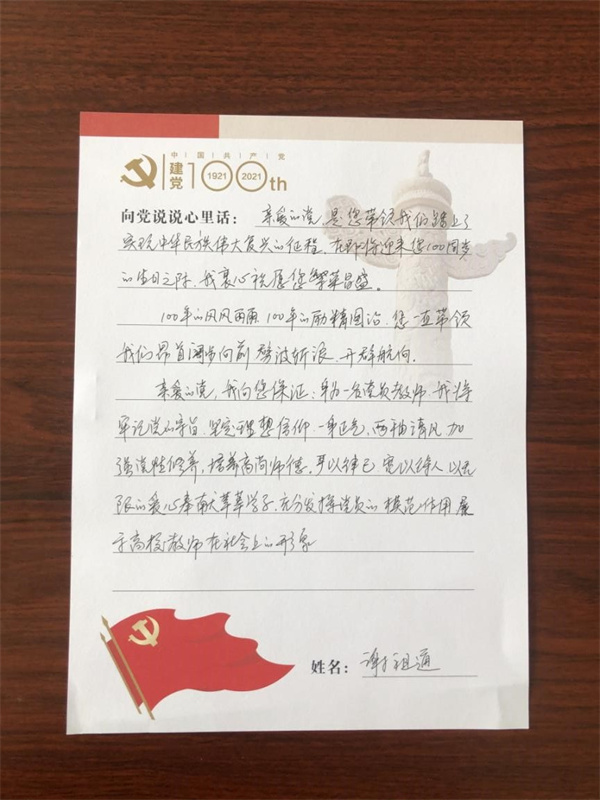 中国共产党
建党 100th
1921 2021
向党说说心里话：亲爱的党，是您带领我们踏上了
实现中华民族伟大复兴的征程，在即将迎来您100周岁
的生日之际，我衷心祝愿您繁荣昌盛。
100年的风风雨雨，100年的励精图治，您一直带领
我们昂首阔步向前，劈波斩浪，开辟航向。
亲爱的党，我向您保证：身为一名党员教师，我将
牢记党的宗旨，坚定理想信仰，一身正气，两袖清风，加
强党性修养，培养高尚师德，严以律己，宽以待人，以无
限的爱心奉献大莘莘学子，充分发挥党员的模范作用，展
于高校教师在社会上的形象
姓名：谢祖通